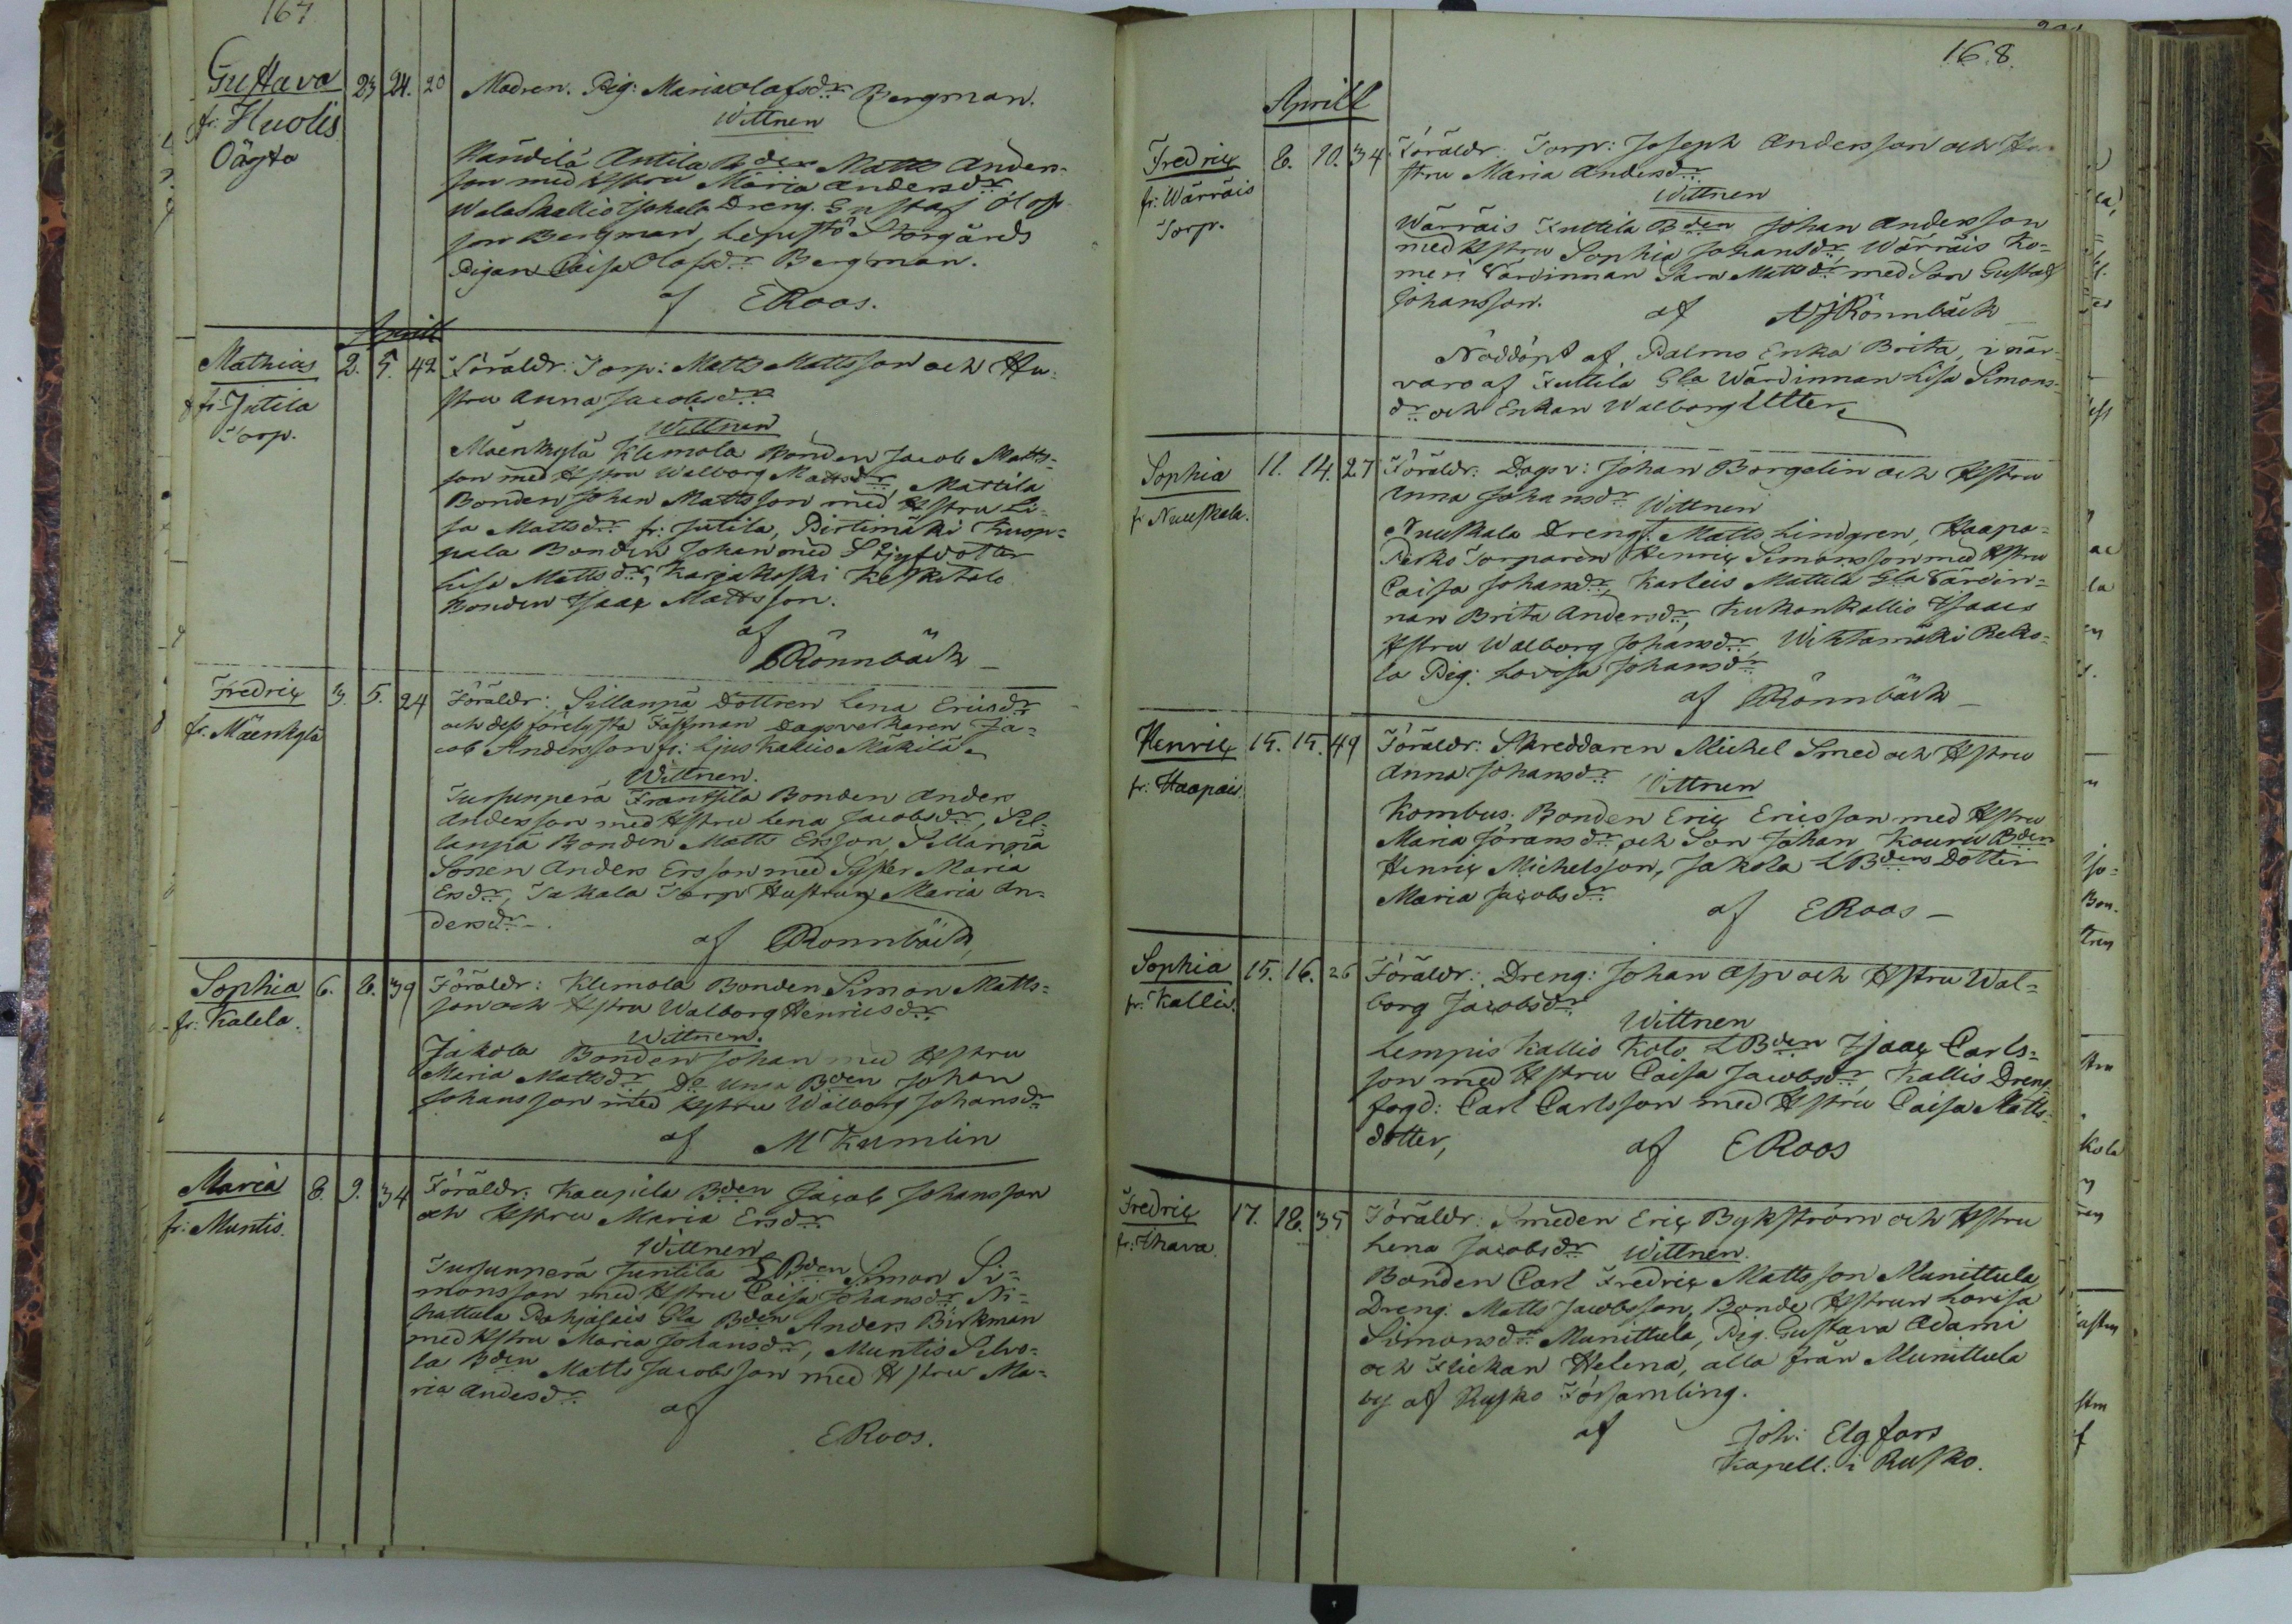 167
Gustava 23 24. 20 Modren. Pig: Maria Olafsdr Bergman.
fr. Huolis
Oägta
Wittnen
Händilä Antila Bden Matts Anders-
son med Hstru Maria Andersdr
Walaskallio Isotalo Dreng. Gustaf Olofs-
son Bergman, Lepistö Storgårds
Pigan Caisa Olofsdr Bergman.
af ERoos.
Aprill
Mathias 2. 5. 42 Föräldr: Torp: Matts Mattsson och Hu-
fr. Jutila
Torp.
stru Anna Jacobsdr
Wittnen
Mäenkylä Klemola Bonden Jacob Matts-
son med Hstru Walborg Mattsdr, Mattila
Bonden Johan Mattsson med Hstru Li-
sa Mattsdr fr. Jutila, Pirtimäki Kuop-
pala Bonden Johan med Styfdotter
Lisa Mattsdr, Karjakoski Keskitalo
Bonden Isaac Mattsson.
af
Rönnbäck
Fredric 3. 5. 24 Föräldr: Sillanpä Dottren Lena Ericsdr
fr. Mäenkylä
och dess förelysta Fästman Dagsverkaren Ja-
cob Andersson fr: Ljuskallio Mäkilä
Wittnen.
Tursunperä Franssila Bonden Anders
Andersson med Hstru Lena Jacobsdr, Sil-
lanpä Bonden Matts Ersson, Sillanpä
Sonen Anders Ersson med Syster Maria
Ersdr, Jakala Torp Hustrun Maria An-
dersdr.
af Rönnbäck
Sophia 6. 8. 39 Föräldr: Klemola Bonden Simon Matts-
fr: Kalela.
son och Hstru Walborg Henricsdr
Wittnen.
Jakola Bonden Johan med Hstru
Maria Mattsdr, Do Unga Bden Johan
Johansson med Hstru Walborg Johansdr
af M Kumlin
Maria 8. 9. 34 Föräldr: Kaupila Bden Jacob Johansson
fr: Muntis.
och Hstru Maria Ersdr
Wittnen
Tursunperä Juntila LBden Simon Si-
monsson med Hstru Caisa Johansdr Ni-
hattula Pohjalais Gla Bden Anders Birkman
med Hstru Maria Johansdr, Muntis Silvo-
la Bden Matts Jacobsson med Hstru Ma-
ria Andersdr
af
ERoos.
168.
Aprill
Fredric 8. 10. 34 Föräldr: Torp: Joseph Andersson och Hu-
fr: Wärräis
Torp.
stru Maria Andersdr
Wittnen
Wärräis Juttila Bden Johan Andersson
med Hstru Sophia Johansdr, Wärräis Ko-
meri Värdinnan Sara Mattsdr med Son Gustaf
Johansson.
af Rönnbäck
Nöddöpt af Palmo Enka Brita, i när-
varo af Juttila Gla Wärdinnan Lisa Simons-
dr och Enkan Walborg Utter
Sophia 11. 14. 27 Föräldr: Dagsv: Johan Borgelin och Hstru
fr Nuuskala.
Anna Johansdr
Wittnen
Nuuskala Dreng. Matts Lindgren, Haapa-
Perko Torparen Henric Simonsson med Hstru
Caisa Johansdr, Karleis Mattila Gla Värdin-
nan Brita Andersdr, Kukonkallio Isaacs
Hstru Walborg Johansdr, Wihtamäki Reko-
la Pig: Lovisa Johansdr
af Rönnbäck
Henric 15. 15. 49 Föräldr: Skreddaren Michel Smed och Hstru
fr: Haapais
Anna Johansdr
Wittnen
Kombus. Bonden Eric Ericsson med Hstru
Maria Göransdr och Son Johan Kouru Bden
Henric Michelsson, Jakola LBdens Dotter
Maria Jacobsdr
af ERoos
Sophia 15. 16. 26 Föräldr: Dreng: Johan Asp och Hstru Wal-
fr: Kallis
borg Jacobsdr
Wittnen
Lempis Kallio Koto. LBden Isaac Carls-
son med Hstru Caisa Jacobsdr, Kallis Dreng
fogd: Carl Carlsson med Hstru Caisa Matts-
dotter,
af ERoos
Fredric 17. 18. 35 Föräldr: Smeden Eric Bykström och Hstru
fr: Ihava.
Lena Jacobsdr
Wittnen.
Bonden Carl Fredric Mattsson Munittula,
Dreng: Matts Jacobsson, Bonde Hstrun Lovisa
Simonsdr Munittula, Pig. Gustava Adami
och Flickan Helena, alla från Munittula
by af Rusko Församling.
af Joh: Elgfors
Kapell: i Rusko.